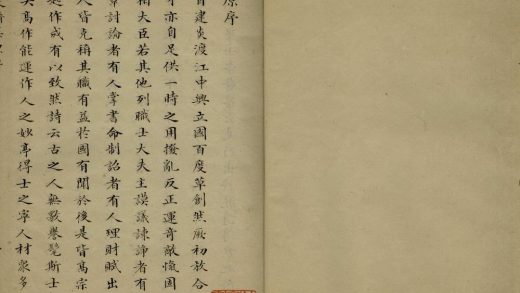 原序
自建炎渡江中興立國百度草創然厥初收合
才亦自足供一時之用撥亂反正運奇敵愾國
相大臣若其他列職士大夫主謨議諫諍者有
章討論者有人掌書命制詔者有人理財賦出
人皆克稱其職有益於國有聞於後是皆高宗
起作成有以致然詩云古之人無斁譽髦斯士
矣高作能運作人之妙享得士之寧人材衆多